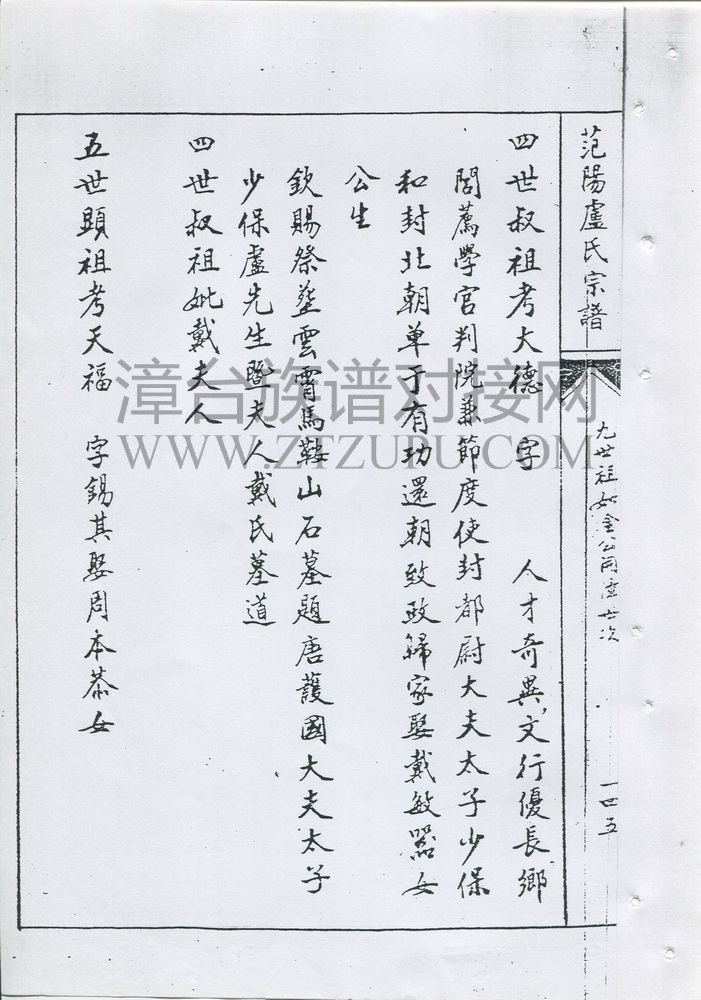 范陽盧氏宗譜
九世祖如金公開漳世次
一四五
四世叔祖考大德 字 人才奇異,文行優長鄉
閭薦學官判院兼節度使封都尉大夫太子少保
和封北朝单于有功還朝致政歸家娶戴敏器女
公生
欽賜祭塋雲霄馬鞍山石墓題唐護國大夫太子
少保盧先生暨夫人戴氏墓道
四世叔祖妣戴夫人
五世顯祖考天福 字錫其娶周本恭女
漳台族谱对接网
WWW.ZTZUPU.COM